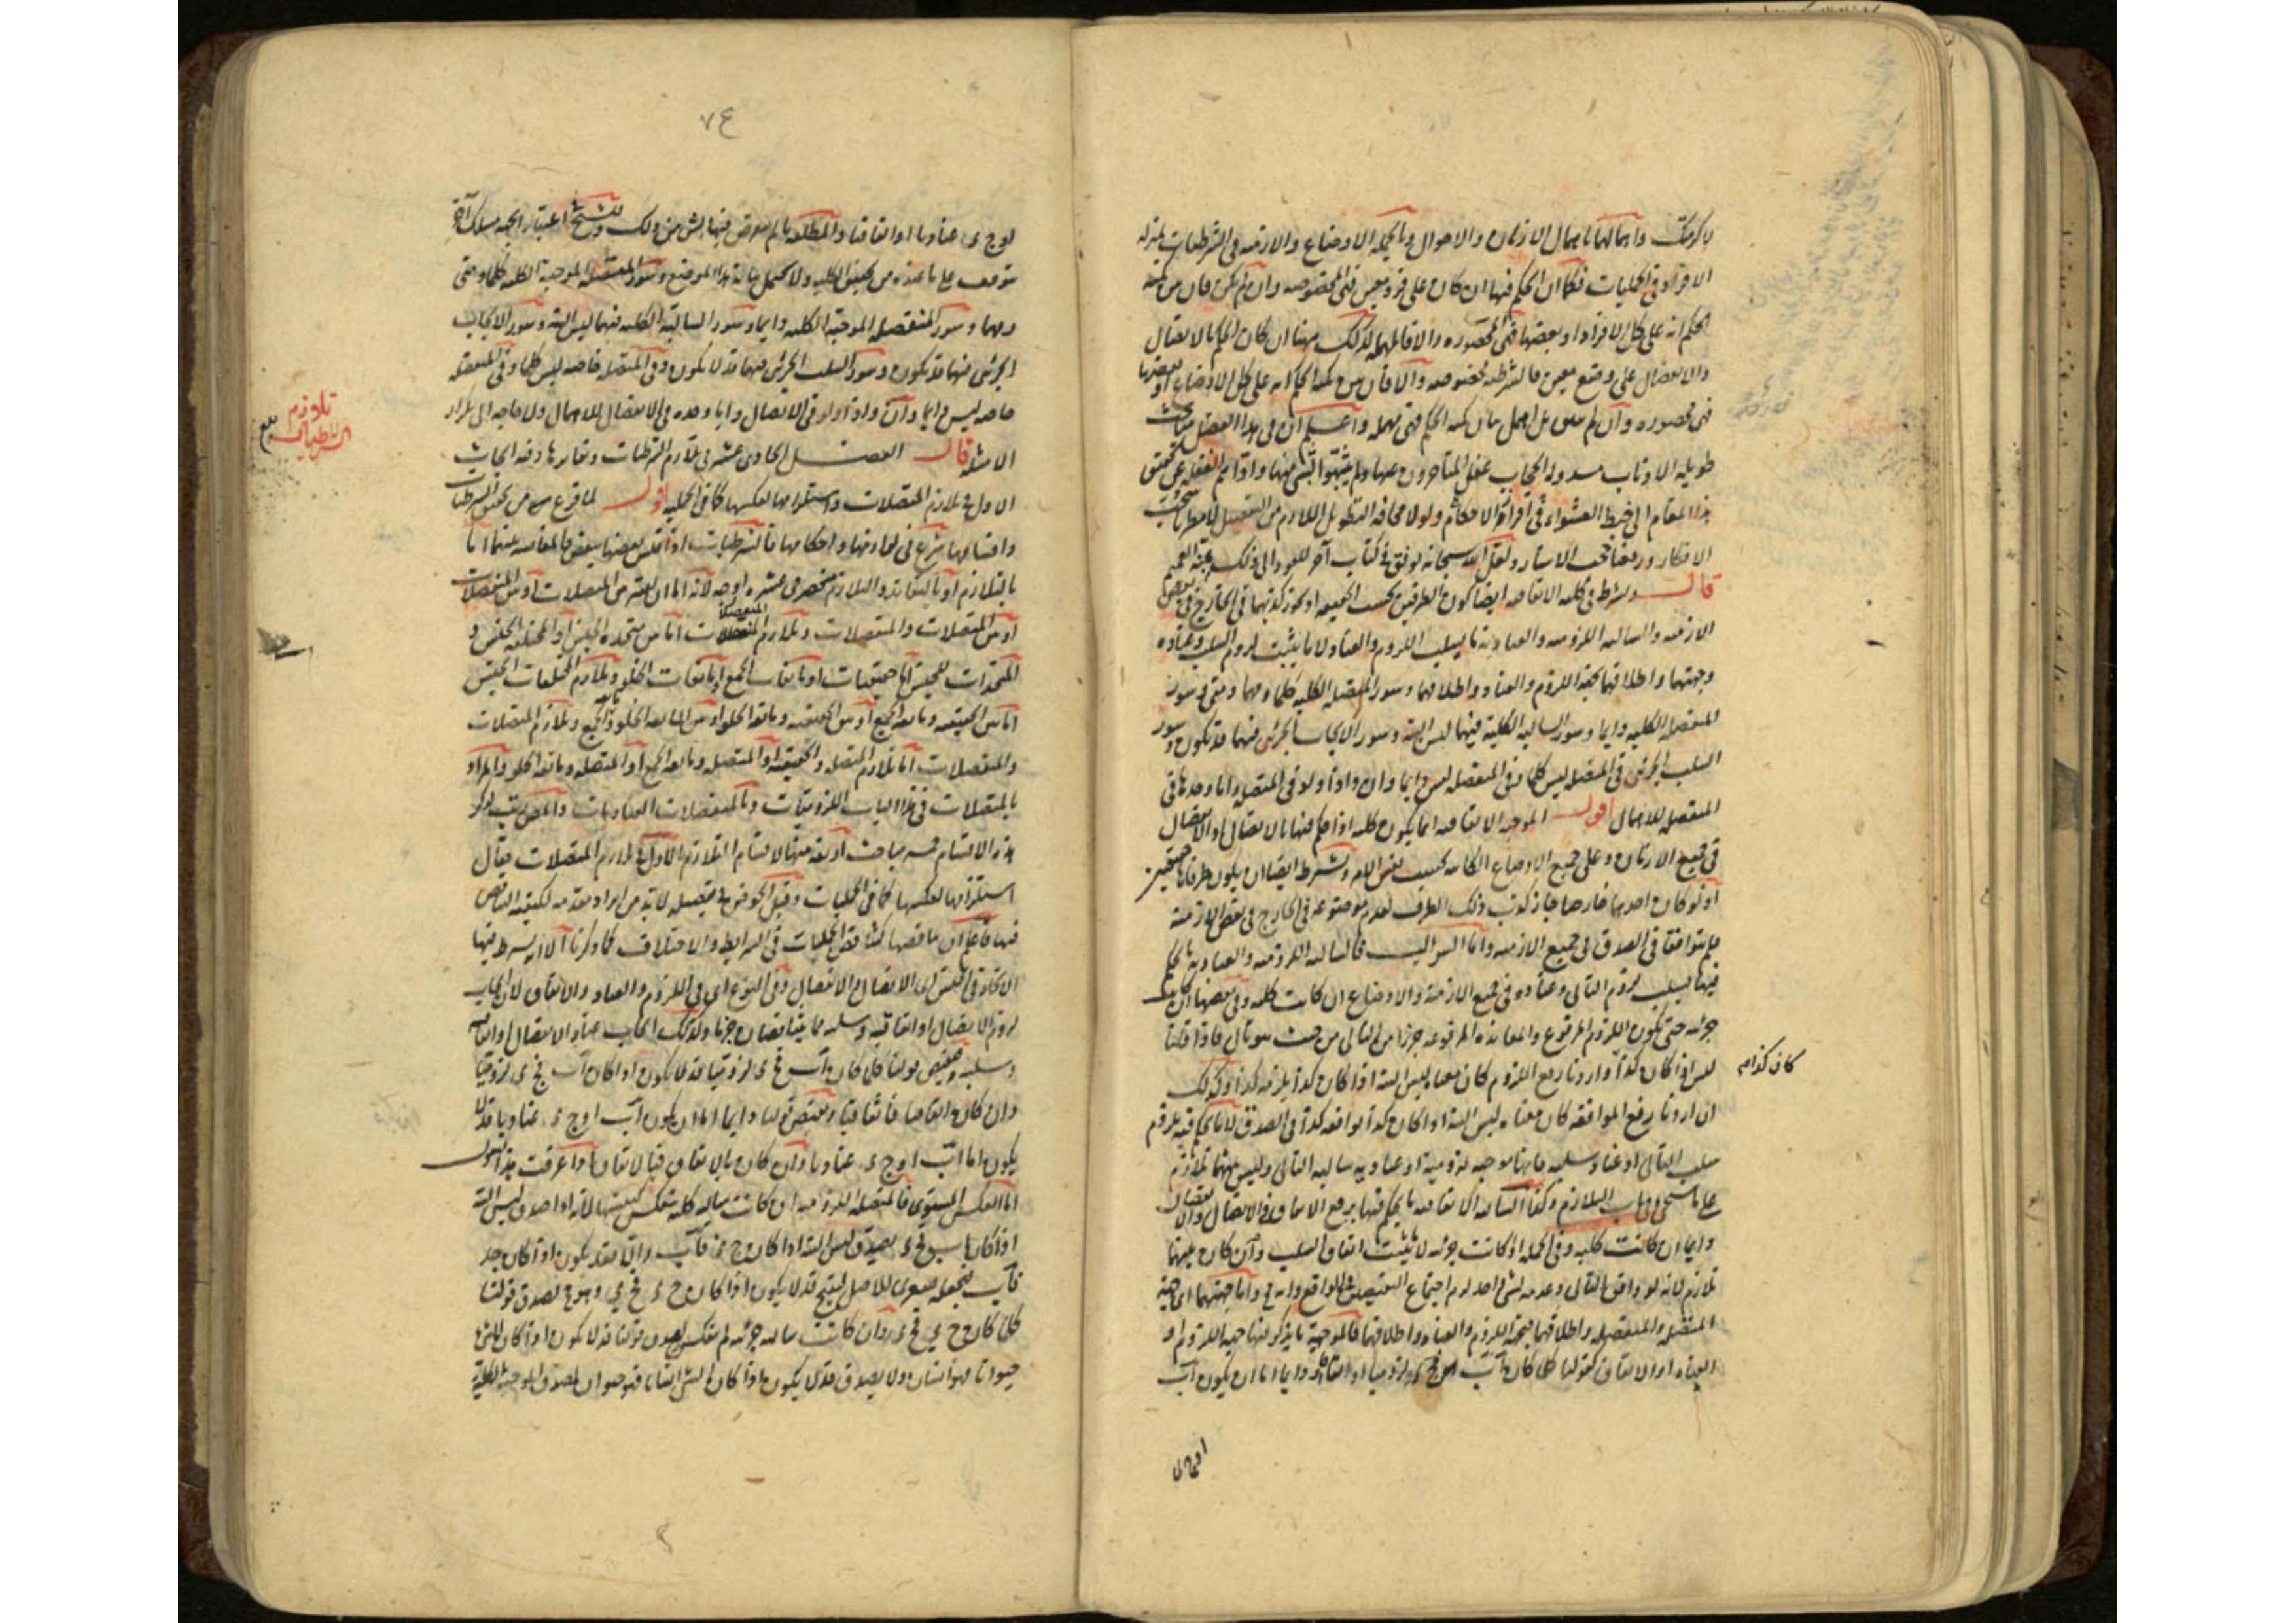 لاكرمتك واهمالها باهمال الازمان والاحوال وبالجملة الاوضاع والازمنة فى الشرطيات بمنزلة
الافراد فى الحمليات فكما ان الحكم فيها ان كان على فرد معين فهى المخصوصة وان لم يكن فان بين كمية
الحكم انه على كل الافراد او بعضها فهى المحصورة والا فالمهملة كذلك ههنا ان كان الحكم بالاتصال
والانفصال على وضع معين فالشرطية مخصوصة والا فان بين كمية الحكم انه على كل الاوضاع او بعضها
فهى محصورة وان لم يبين بل اهمل بيان كمية الحكم فهى مهملة واعلم ان فى هذا الفصل مباحث
طويلة الاذناب مسدولة الحجاب غفل المتأخرون عنها ولم يتنبهوا لشئ منها واداهم الغفلة عن تحقيق
هذا المقام الى خبط العشواء فى الاحكام ولولا مخافة التطويل اللازم من التفصيل
الافكار ورفعنا تلك الاستار ولعل الله سبحانه يوفق فى كتاب آخر للعود الى ذلك
قال ويشترط فى كلية الاتفاقية ايضا كون الطرفين بحسب الحقيقة او يجوز كذبهما فى الخارج فى بعض
الازمنة والسالبة اللزومية والعنادية ما يسلب اللزوم والعناد لا ما يثبت لزوم السلب وعناده
وجهتهما واطلاقهما بجهة اللزوم والعناد واطلاقهما وسور المتصلة الكلية كلما ومهما ومتى وسور
المنفصلة الكلية دايما وسور السالبة الكلية فيهما ليس البتة وسور الايجاب الجزئى فيهما قد يكون وسور
السلب الجزئى فى المتصلة ليس كلما وفى المنفصلة ليس دايما وان واذا ولو فى المتصلة واما وحدها فى
المنفصلة للاهمال اقول الموجبة الاتفاقية انما يكون كلية اذا حكم فيها بالاتصال او الانفصال
فى جميع الازمان وعلى جميع الاوضاع الكاينة بحسب نفس الامر ويشترط ايضا ان يكون طرفاها حقيقيين
اذ لو كان احدهما خارجيا جاز كذب ذلك الطرف لعدم موضوعه فى الخارج فى بعض الازمنة
فلم يتوافقا فى الصدق فى جميع الازمنة واما السوالب فالسالبة اللزومية والعنادية ما يحكم
فيها بسلب لزوم التالى وعناده فى جميع الازمنة والاوضاع ان كانت كلية وفى بعضها ان كانت
جزئية حتى يكون اللزوم المرفوع والمعاندة المرفوعة جزءا من التالى من حيث هو تالى فاذا قلنا
ليس اذا كان كذا واردنا رفع اللزوم كان معناه ليس البتة اذا كان كذا يلزمه كذا وكذلك
كان كذا صح
ان اردنا رفع الموافقة كان معناه ليس البتة اذا كان كذا يوافقه كذا فى الصدق لا ما يحكم فيه بلزوم
سلب التالى او عناد سلبه فانها موجبة لزومية او عنادية سالبة التالى وليس بينهما تلازم
على ما سيجئ فى باب التلازم وكذا السالبة الاتفاقية ما يحكم فيها برفع الاتفاق فى الاتصال والانفصال
دايما ان كانت كلية وفى الجملة ان كانت جزئية لا ما يثبت اتفاق السلب وان كان بينهما
تلازم لانه لو وافق التالى وعدمه لشئ واحد لزم اجتماع النقيضين فى الواقع واما جهتهما اى جهة
المتصلة والمنفصلة واطلاقهما بجهة اللزوم والعناد واطلاقهما فالموجهة ما يذكر فيها جهة اللزوم او
العناد او الاتفاق كقولنا كلما كان اب فج د لزوميا او اتفاقيا ودايما اما ان يكون اب
او ج د
٧٤
او ج د عناديا او اتفاقيا والمطلقة ما لم يتعرض فيها لشئ من ذلك وللشيخ اعتبار الجهة مسلك آخر
يتوقف على ما عنده من تحقيق الكلية ولا يحتمل بيانه هذا الموضع وسور المتصلة الموجبة الكلية كلما ومتى
ومهما وسور المنفصلة الموجبة الكلية دايما وسور السالبة الكلية فيهما ليس البتة وسور الايجاب
الجزئى فيهما قد يكون وسور السلب الجزئى فيهما قد لا يكون وفى المتصلة خاصة ليس كلما وفى المنفصلة
خاصة ليس دايما وان واذا ولو فى الاتصال واما وحده فى الانفصال للاهمال ولا حاجة الى تكرار
الامثلة قال الفصل الحادى عشر فى تلازم الشرطيات وتعاندها وفيه ابحاث
تلازم الشرطيات
الاول فى تلازم المتصلات واستلزامها لعكسها كما فى الحملية اقول لما فرغ من تحقيق الشرطيات
واقسامها شرع فى لوازمها واحكامها فالشرطيات اذا قيس بعضها ببعض فالمقايسة بينهما اما
بالتلازم او بالتعاند والتلازم منحصر فى عشرة اوجه لانه اما ان يعتبر بين المتصلات او بين المنفصلات
او بين المتصلات والمنفصلات وتلازم المنفصلات اما بين متحدة الجنس او المختلفة الجنس و
المتحدات الجنس اما حقيقيات او مانعات الجمع او مانعات الخلو وتلازم المختلفات الجنس
اما بين الحقيقية ومانعة الجمع او بين الحقيقية ومانعة الخلو او بين مانعة الخلو والجمع وتلازم المتصلات
والمنفصلات اما تلازم المتصلة والحقيقية او المتصلة ومانعة الجمع او المتصلة ومانعة الخلو والمراد
بالمتصلات فى هذا الباب اللزوميات وبالمنفصلات العناديات والمص رتب لذكر
هذه الاقسام خمسة مباحث اربعة منها لاقسام التلازم الاول فى تلازم المتصلات فقال
استلزامها لعكسها كما فى الحمليات وقبل الخوض فى تفصيله لا بد من ايراد مقدمة لكيفية التناقض
فيها فاعلم ان تناقضها كتناقض الحمليات فى الشرايط والاختلاف كما ذكرنا الا انه يشترط فيها
الاتحاد فى الجنس اى الاتصال والانفصال وفى النوع اى فى اللزوم والعناد والاتفاق لان ايجاب
لزوم الاتصال او اتفاقيته وسلبه مما يتناقضان جزما وكذلك ايجاب عناد الانفصال او اتفاقه
وسلبه فنقيض قولنا كلما كان اب فج د لزوميا قد لا يكون اذا كان اب فج د لزوميا
وان كان اتفاقيا فاتفاقيا ونقيض قولنا دايما اما ان يكون اب او ج د عناديا قد لا
يكون اما اب او ج د عناديا وان كان بالاتفاق فبالاتفاق اذا عرفت هذا فنقول
اما العكس المستوى فالمتصلة اللزومية ان كانت سالبة كلية تنعكس كنفسها لانه اذا صدق ليس البتة
اذا كان اب فج د يصدق ليس البتة اذا كان ج د فاب والا فقد يكون اذا كان ج د
فاب فنجعله صغرى للاصل لينتج قد لا يكون اذا كان ج د فج د وهو مح لصدق قولنا
كلما كان ج د فج د وان كانت سالبة جزئية لم تنعكس لصدق قولنا قد لا يكون اذا كان الشئ
حيوانا فهو انسان ولا يصدق قد لا يكون اذا كان الشئ انسانا فهو حيوان لصدق الموجبة الكلية